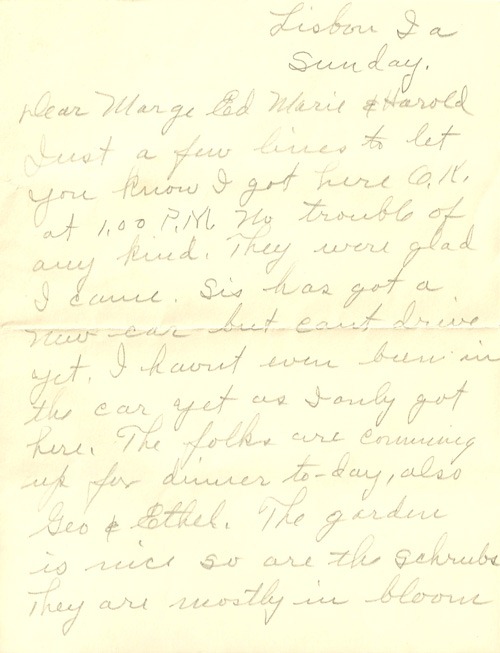 Lisbon Ia
Sunday.
Dear Marge Ed Marie & Harold
Just a few lines to let
you know I got here O.K.
at 1.00 P.M. No trouble of
any kind. They were glad
I came. Sis has got a
new car but cant drive
yet. I havnt even been in
the car yet as I only got
here. The folks are comming
up for dinner to-day, also
Geo & Ethel. The garden
is nice so are the schrubs
They are mostly in bloom